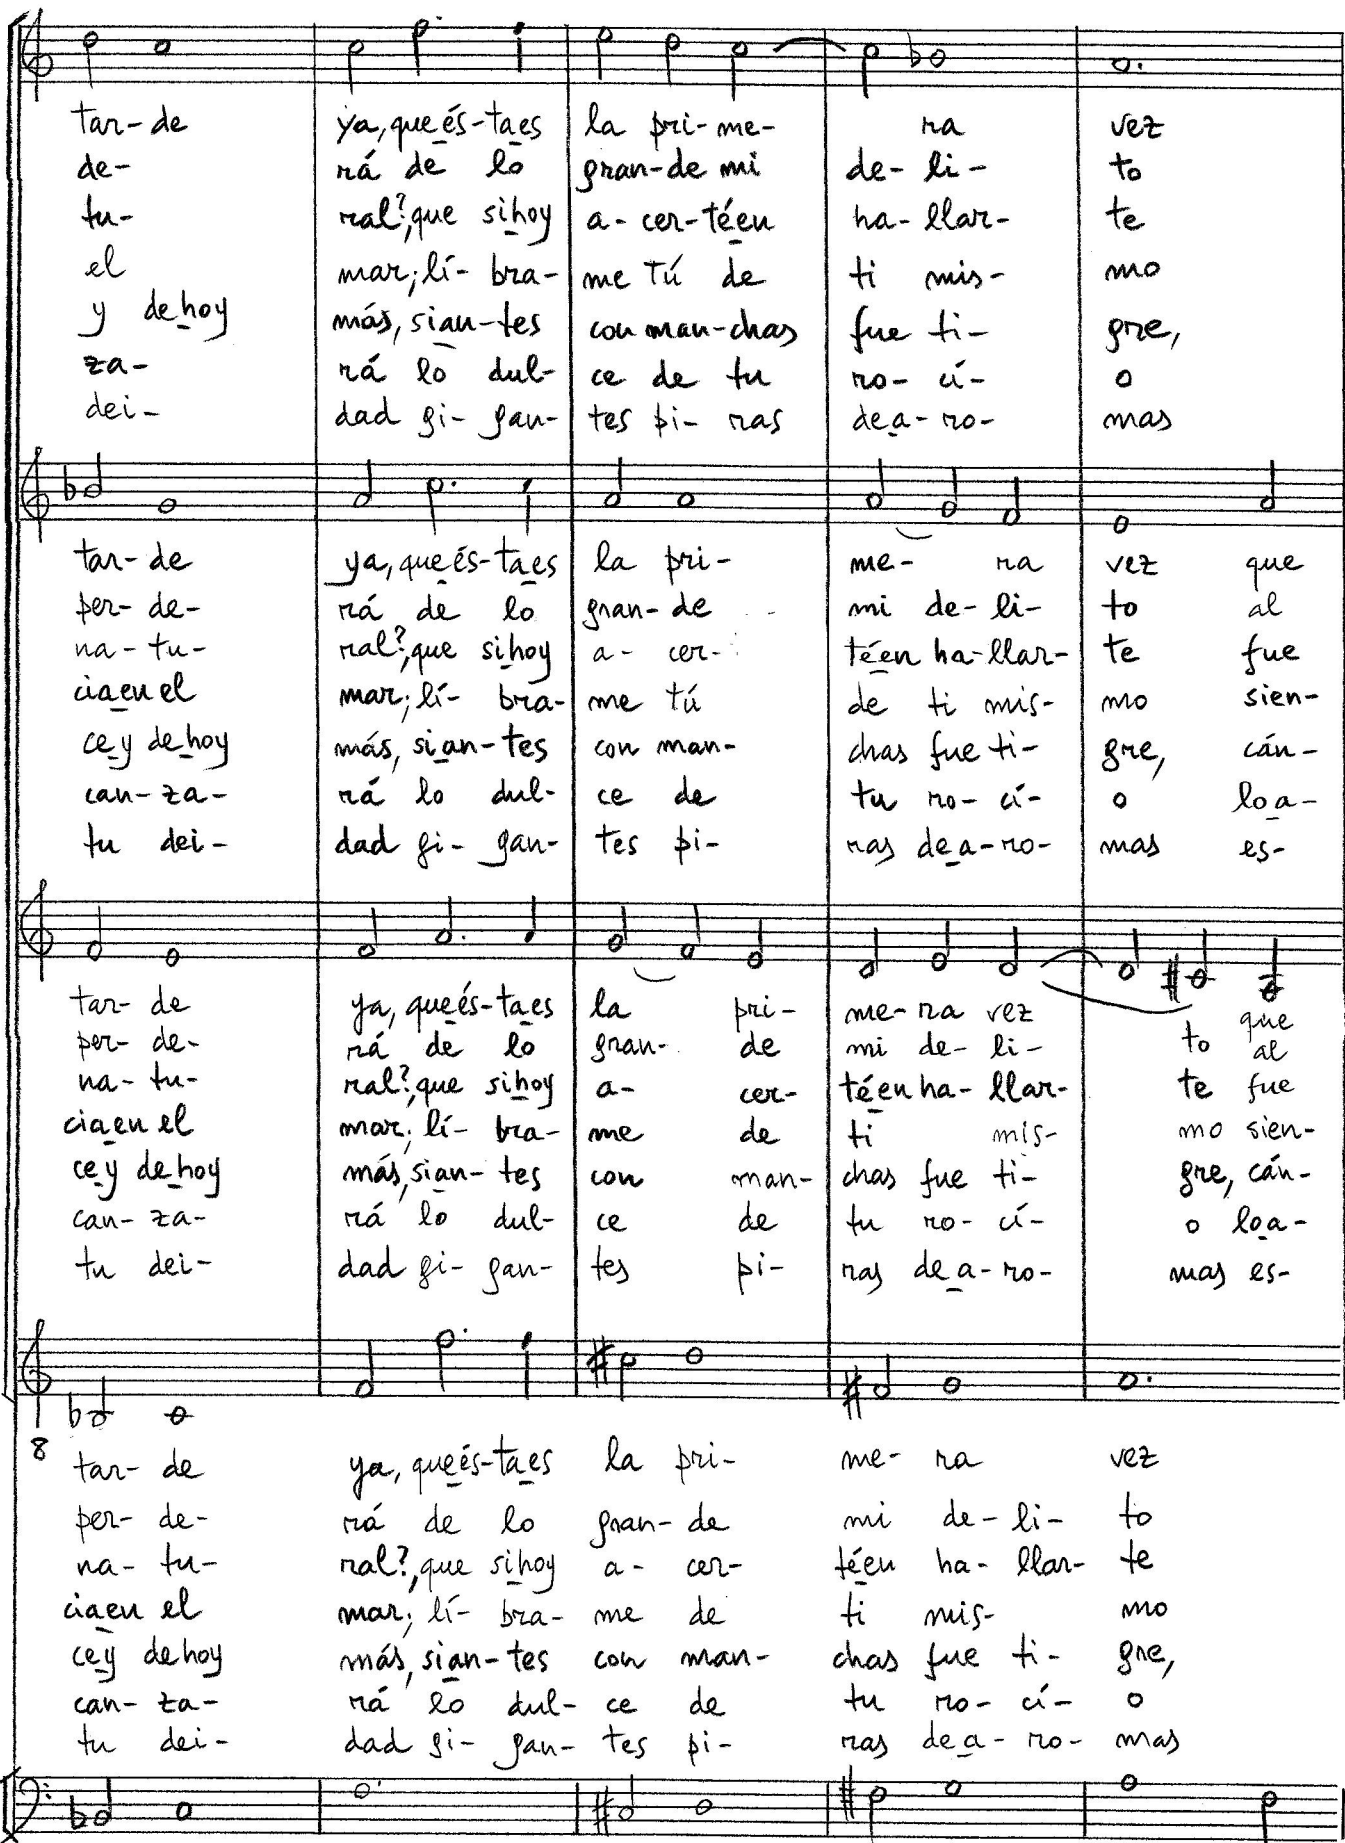 tar-de ya, que és-ta es la pri-me- ra vez
de- rá de lo gran-de mi de-li- to
tu- ral?, que si hoy a-cer-té en ha-llar- te
el mar; lí-bra- me tú de ti mis- mo
y de hoy más, si an-tes con man-chas fue ti- gre,
za- rá lo dul- ce de tu ro-cí- o
dei- dad gi-gan- tes pi-ras de a-ro- mas
tar-de ya, que és-ta es la pri- me- ra vez que
per-de- rá de lo gran-de mi de-li- to al
na-tu- ral?, que si hoy a-cer- té en ha-llar- te fue
cia en el mar; lí-bra- me tú de ti mis- mo sien-
ce y de hoy más, si an-tes con man- chas fue ti- gre, cán-
can-za- rá lo dul- ce de tu ro-cí- o lo a-
tu dei- dad gi-gan- tes pi- ras de a-ro- mas es-
tar-de ya, que és-ta es la pri- me-ra vez que
per-de- rá de lo gran- de mi de-li- to al
na-tu- ral?, que si hoy a- cer- té en ha-llar- te fue
cia en el mar; lí-bra- me de ti mis- mo sien-
ce y de hoy más, si an-tes con man- chas fue ti- gre, cán-
can-za- rá lo dul- ce de tu ro-cí- o lo a-
tu dei- dad gi-gan- tes pi- ras de a-ro- mas es-
8
tar-de ya, que és-ta es la pri- me-ra vez
per-de- rá de lo gran-de mi de-li- to
na-tu- ral?, que si hoy a-cer- té en ha-llar- te
cia en el mar; lí-bra- me de ti mis- mo
ce y de hoy más, si an-tes con man- chas fue ti- gre,
can-za- rá lo dul- ce de tu ro-cí- o
tu dei- dad gi-gan- tes pi- ras de a-ro- mas